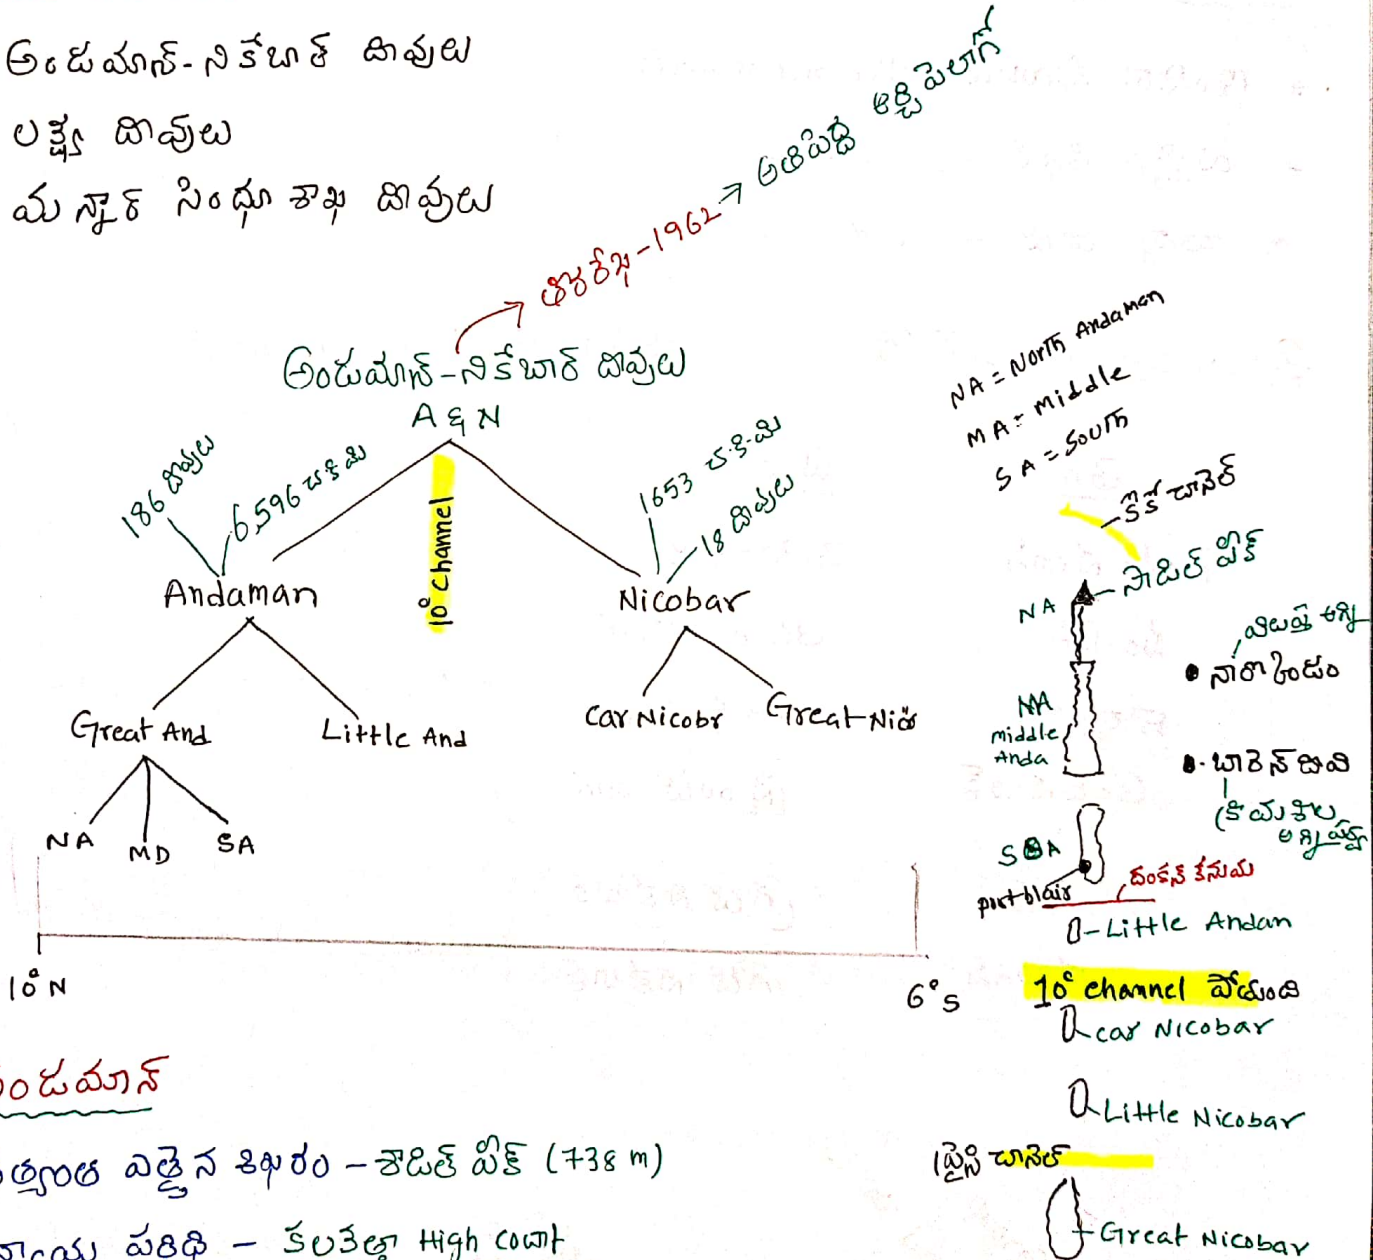 అండమాన్-నికేబార్ దీవులు
లక్ష్య దీవులు
మన్నార్ సింధూశాఖ దీవులు
తీరరేఖ-1962 → అతిపెద్ద ఆర్చిపెలాగో
అండమాన్-నికేబార్ దీవులు
A & N
186 దీవులు
6,596 చ కి మి
10° channel
1653 చ.కి.మి
18 దీవులు
Andaman
Nicobar
Great And
Little And
Car Nicobr
Great Nico
NA
MD
SA
10°N
6°S
NA = North Andaman
MA = Middle
SA = South
కోకో చానెల్
సాడిల్ పీక్
NA
విలుప్త అగ్ని
నార్కొండం
MA
middle
Anda
బారెన్ దీవి
(క్రియాశీల
అగ్ని పర్వ
SA
port blair
డంకన్ కనుమ
Little Andan
10° channel పోయింది
car Nicobar
Little Nicobar
గ్రేని చానెల్
Great Nicobar
ండమాన్
త్యంత ఎత్తైన శిఖరం - శాడిల్ పీక్ (738 m)
న్యాయ పరిధి - కలకత్తా High court